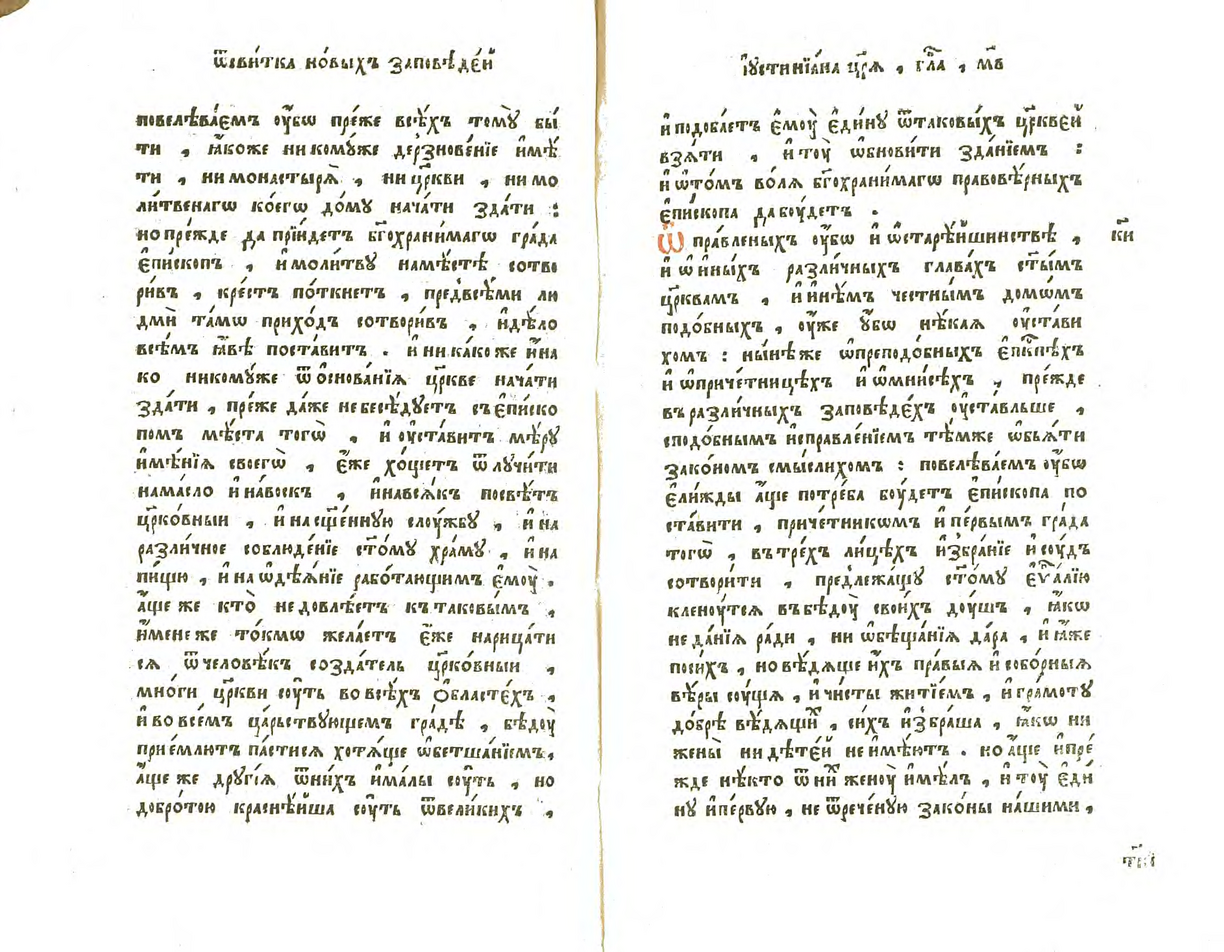 ѿсви́тка но́выхъ за́повѣде́й
повелѣва́емъ ᲂу҆́бѡ пре́же всѣ́хъ томꙋ̀ бы́
ти , ꙗ҆́коже никомꙋ́же дерзнове́нїе и҆мѣ́
ти , ни монастырѧ̀ , ни цр҃кви , ни мо
ли́твенагѡ ко́егѡ до́мꙋ нача́ти зда́ти :
но пре́жде да прїи́детъ бг҃охрани́магѡ гра́да
є҆пи́скопъ , и҆ моли́твꙋ на мѣ́стѣ сотво
ри́въ , кре́стъ по́ткнетъ , предвсѣ́ми лю
дмѝ та́мѡ прихо́дъ сотвори́въ , и҆ дѣ́ло
всѣ́мъ ꙗ҆́вѣ поста́витъ . и҆ ни ка́ко же и҆́на
ко никомꙋ́же ѿ ѻ҆снова́нїѧ цр҃кве нача́ти
зда́ти , пре́же да́же не бесѣ́дꙋетъ съ є҆пи́ско
помъ мѣ́ста тогѡ̀ , и҆ ᲂу҆ста́витъ мѣ́рꙋ
и҆мѣ́нїѧ своегѡ̀ , є҆́же хо́щетъ ѿлꙋчи́ти
на ма́сло и҆ на́воскъ , и҆ на всѧ́къ посвѣ́тъ
цр҃ко́вныи , и҆ на сщ҃е́ннꙋю слоу́жбꙋ , и҆ на
разли́чное соблюде́нїе ст҃о́мꙋ хра́мꙋ , и҆ на
пи́щю , и҆ на ѡ҆дѣѧ́нїе рабо́тающимъ є҆моу̀ .
а҆́ще же кто̀ не довлѣ́етъ къ таковы́мъ ,
и҆́мене же то́кмѡ жела́етъ є҆́же нарица́ти
сѧ ѿ человѣ́къ созда́тель цр҃ко́вныи ,
мно́ги цр҃кви соу́ть во всѣ́хъ ѻ҆́бласте́хъ ,
и҆ во все́мъ ца́рьствꙋющемъ гра́дѣ , бѣдоу̀
прие́млютъ па́стисѧ хотѧ́ще ѡ҆бетша́нїемъ ,
а҆́ще же дрꙋгі́ѧ ѿни́хъ и҆ ма́лы соу́ть , но
добро́тою краснѣ́йша соу́ть ѿвели́кихъ ,
і҆ꙋстинїа́на цр҃ѧ , гл҃а , м҃в
и҆ подоба́етъ є҆моу̀ є҆ди́нꙋ ѿтаковы́хъ цр҃кве́й
взѧ́ти , и҆ тоу̀ ѡ҆бнови́ти зда́нїемъ :
и҆ ѡ҆то́мъ во́лѧ бг҃охрани́магѡ правовѣ́рныхъ
є҆пи́скопа да боу́детъ .
Ѿ пра́вленыхъ ᲂу҆́бѡ и҆ ѡ҆старѣ́йшинствѣ , к҃и
и҆ ѡ҆ и҆ны́хъ разли́чныхъ глава́хъ ст҃ы́мъ
цр҃квамъ , и҆ и҆нѣ́мъ честны́мъ домѡ́мъ
подо́бныхъ , ᲂу҆́же ᲂу҆́бѡ нѣ́каѧ ᲂу҆ста́ви
хомъ : ны́нѣ же ѡ҆преподо́бныхъ є҆пи҃скпѣхъ
и҆ ѡ҆приче́тницѣхъ и҆ ѡ҆мни́сѣхъ , пре́жде
въ разли́чныхъ за́повѣде́хъ ᲂу҆ста́вльше ,
сподо́бнымъ и҆справле́нїемъ тѣ́мже ѡ҆бьѧ́ти
зако́номъ смы́слихомъ : повелѣва́емъ ᲂу҆́бѡ
є҆ли́жды а҆́ще потре́ба боу́детъ є҆пи́скопа по
ста́вити , приче́тникѡмъ и҆ пе́рвымъ гра́да
тогѡ̀ , въ тре́хъ ли́цѣхъ и҆збра́нїе и҆ соу́дъ
сотвори́ти , предлежа́щꙋ ст҃о́мꙋ є҆ѵⷢ҇а́лїю
кленоу́тсѧ въ бѣдоу̀ свои́хъ доу́шъ , ꙗ҆́кѡ
не да́нїѧ ра́ди , ни ѡ҆бѣща́нїѧ да́ра , и҆ ꙗ҆́же
поси́хъ , но вѣ́дѧще и҆́хъ пра́выѧ и҆ собо́рныѧ
вѣ́ры соу́щѧ , и҆ чи́сты житїе́мъ , и҆ гра́мотꙋ
до́брѣ вѣ́дѧщиⷯ , си́хъ и҆збра́ша , ꙗ҆́кѡ ни
жены̀ ни дѣте́й не и҆мѣ́ютъ . но а҆́ще и҆ пре́
жде нѣ́кто ѿ ниⷯ женоу̀ и҆мѣ́лъ , и҆ тоу̀ є҆ди́
нꙋ и҆ пе́рвꙋю , не ѿрече́нꙋю зако́ны на́шими ,